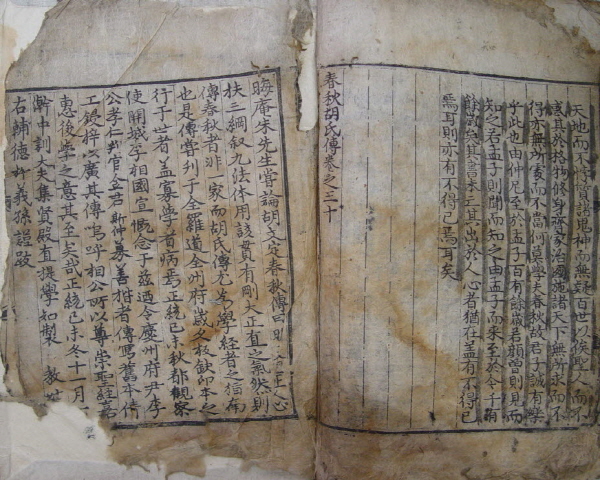 天地而不悖質諸鬼神而無疑百世以俟聖人而不
惑其於格物修身齊家治國施諸天下無所求而不
得亦無所處而不當何莫學夫春秋故君子誠有樂
乎此也由仲尼至於孟子百有餘歲若顏曾則見而
知之若孟子則聞而知之由孟子而來至於今千有
餘歲矣其書未亡其出於人心者猶在蓋有不得已
焉耳則亦有不得已焉耳矣
春秋胡氏傳卷之三十
晦庵朱先生嘗論胡文定春秋傳曰明 正人心
扶三綱叙九法体用該貫有剛大正直之氣然則
傳春秋者非一家而胡氏傳尤為學經者之指南
也是傳嘗刊于全羅道全州府歲久板缺印本之
行于世者盖寡學者病焉正統已未秋都觀察
使開城李相國宣慨念于茲迺令慶州府尹李
公孝仁判官 君 斯仲募善楷者傳寫舊本倩
工鋟梓以廣其傳嗚呼相公所以尊崇聖経嘉
惠後學之意其至矣哉正統已未冬十一月
幹中訓大夫集賢殿直提學知製 教
右輔德許義孫謹跋